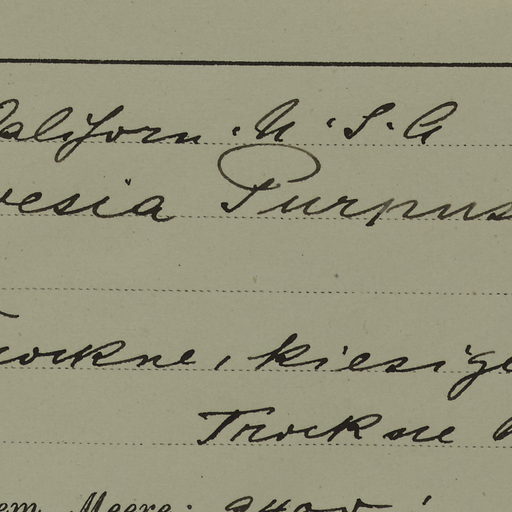 Californ. U. S. A
vesia Purpus
Trockne, kiesige
Trockne
em Meere: